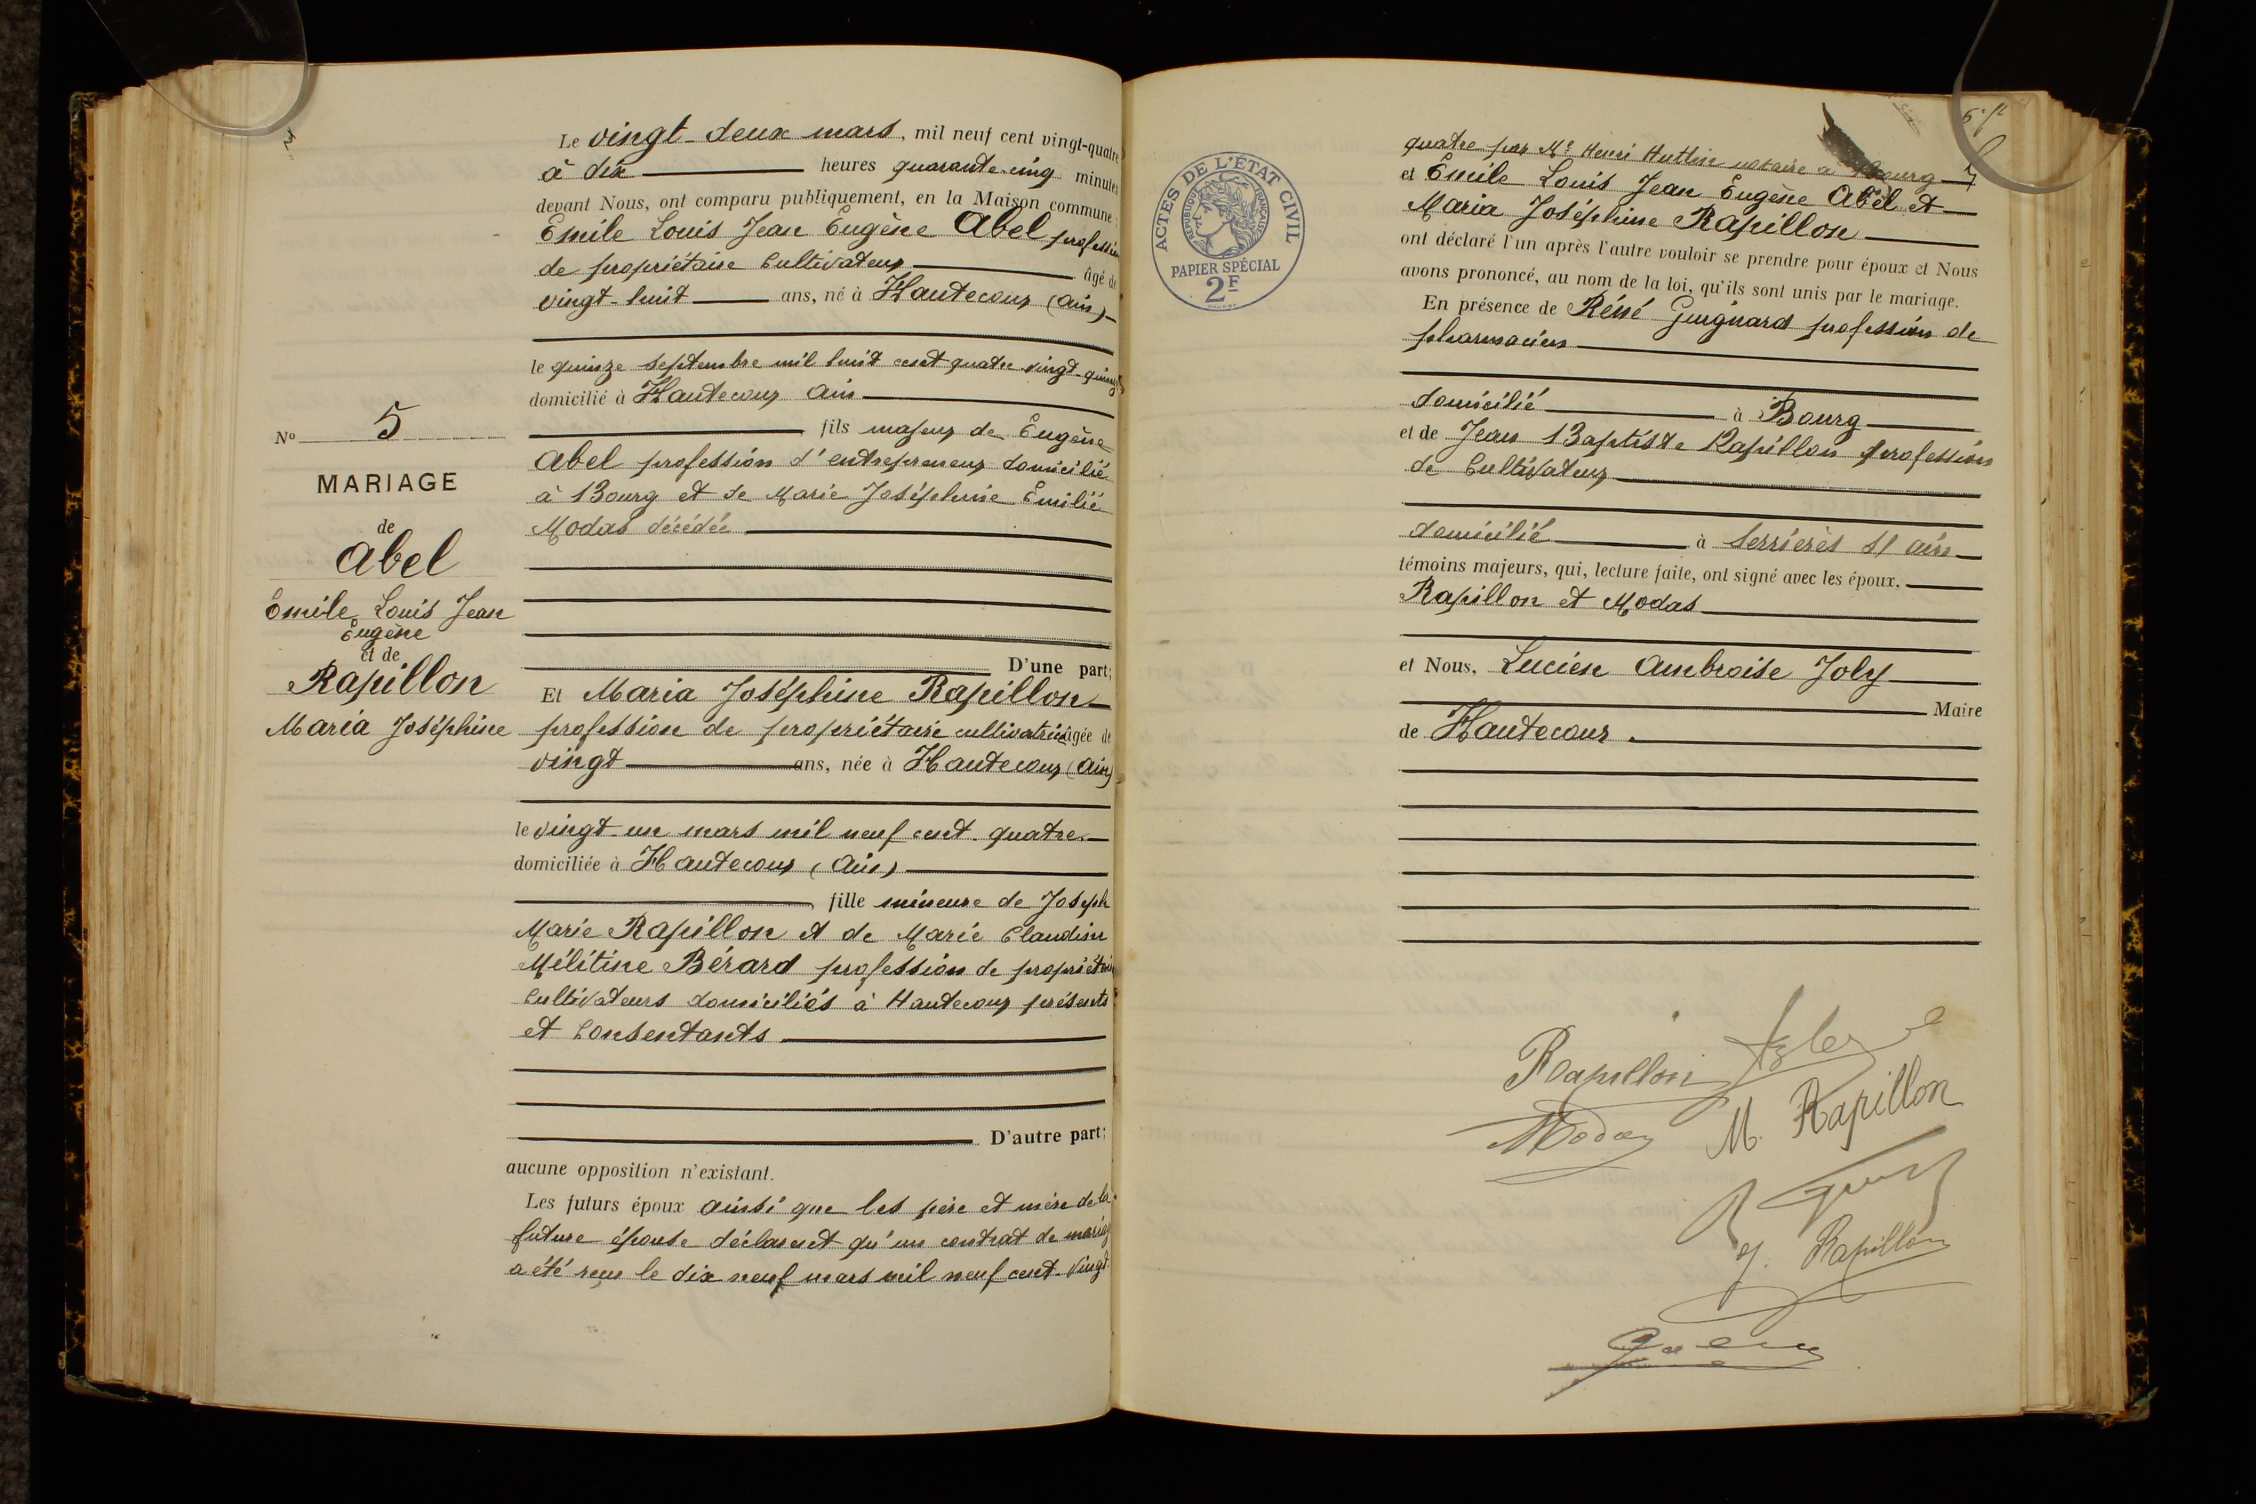 Le vingt-deux mars, mil neuf cent vingt-quatre
à dix heures quarante-cinq minutes
devant Nous, ont comparu publiquement, en la Maison commune :
Emile Louis Jean Eugène Abel profession
de propriétaire cultivateur âgé de
vingt-huit ans, né à Hautecour (Ain)
le quinze septembre mil huit cent quatre-vingt-quinze
domicilié à Hautecour Ain
fils majeur de Eugène
Abel profession d'entrepreneur domicilié
à Bourg et de Marie Joséphine Emilie
Modas décédée
D'une part;
Et Maria Joséphine Rapillon
profession de propriétaire cultivatrice âgée de
vingt ans, née à Hautecour (Ain)
le vingt-un mars mil neuf cent quatre
domiciliée à Hautecour (Ain)
fille mineure de Joseph
Marie Rapillon et de Marie Claudine
Mélitine Bérard profession de propriétaires
cultivateurs domiciliés à Hautecour présents
et consentants
D'autre part;
aucune opposition n'existant.
Les futurs époux ainsi que les père et mère de la
future épouse déclarent qu'un contrat de mariage
a été reçu le dix neuf mars mil neuf cent vingt
Nº 5
MARIAGE
de
Abel
Emile Louis Jean
Eugène
et de
Rapillon
Maria Joséphine
ACTES DE L'ÉTAT CIVIL
RÉPUBLIQUE FRANÇAISE
PAPIER SPÉCIAL
2F
quatre par Me Henri Huttin notaire à Bourg
et Emile Louis Jean Eugène Abel et
Maria Joséphine Rapillon
ont déclaré l'un après l'autre vouloir se prendre pour époux et Nous
avons prononcé, au nom de la loi, qu'ils sont unis par le mariage.
En présence de Réné Guignard profession de
pharmacien
domicilié à Bourg
et de Jean Baptiste Rapillon profession
de cultivateur
domicilié à Serrières s/ Ain
témoins majeurs, qui, lecture faite, ont signé avec les époux.
Rapillon et Modas
et Nous, Lucien Ambroise Joly
Maire
de Hautecour.
Rapillon
Modas
M. Rapillon
J. Rapillon